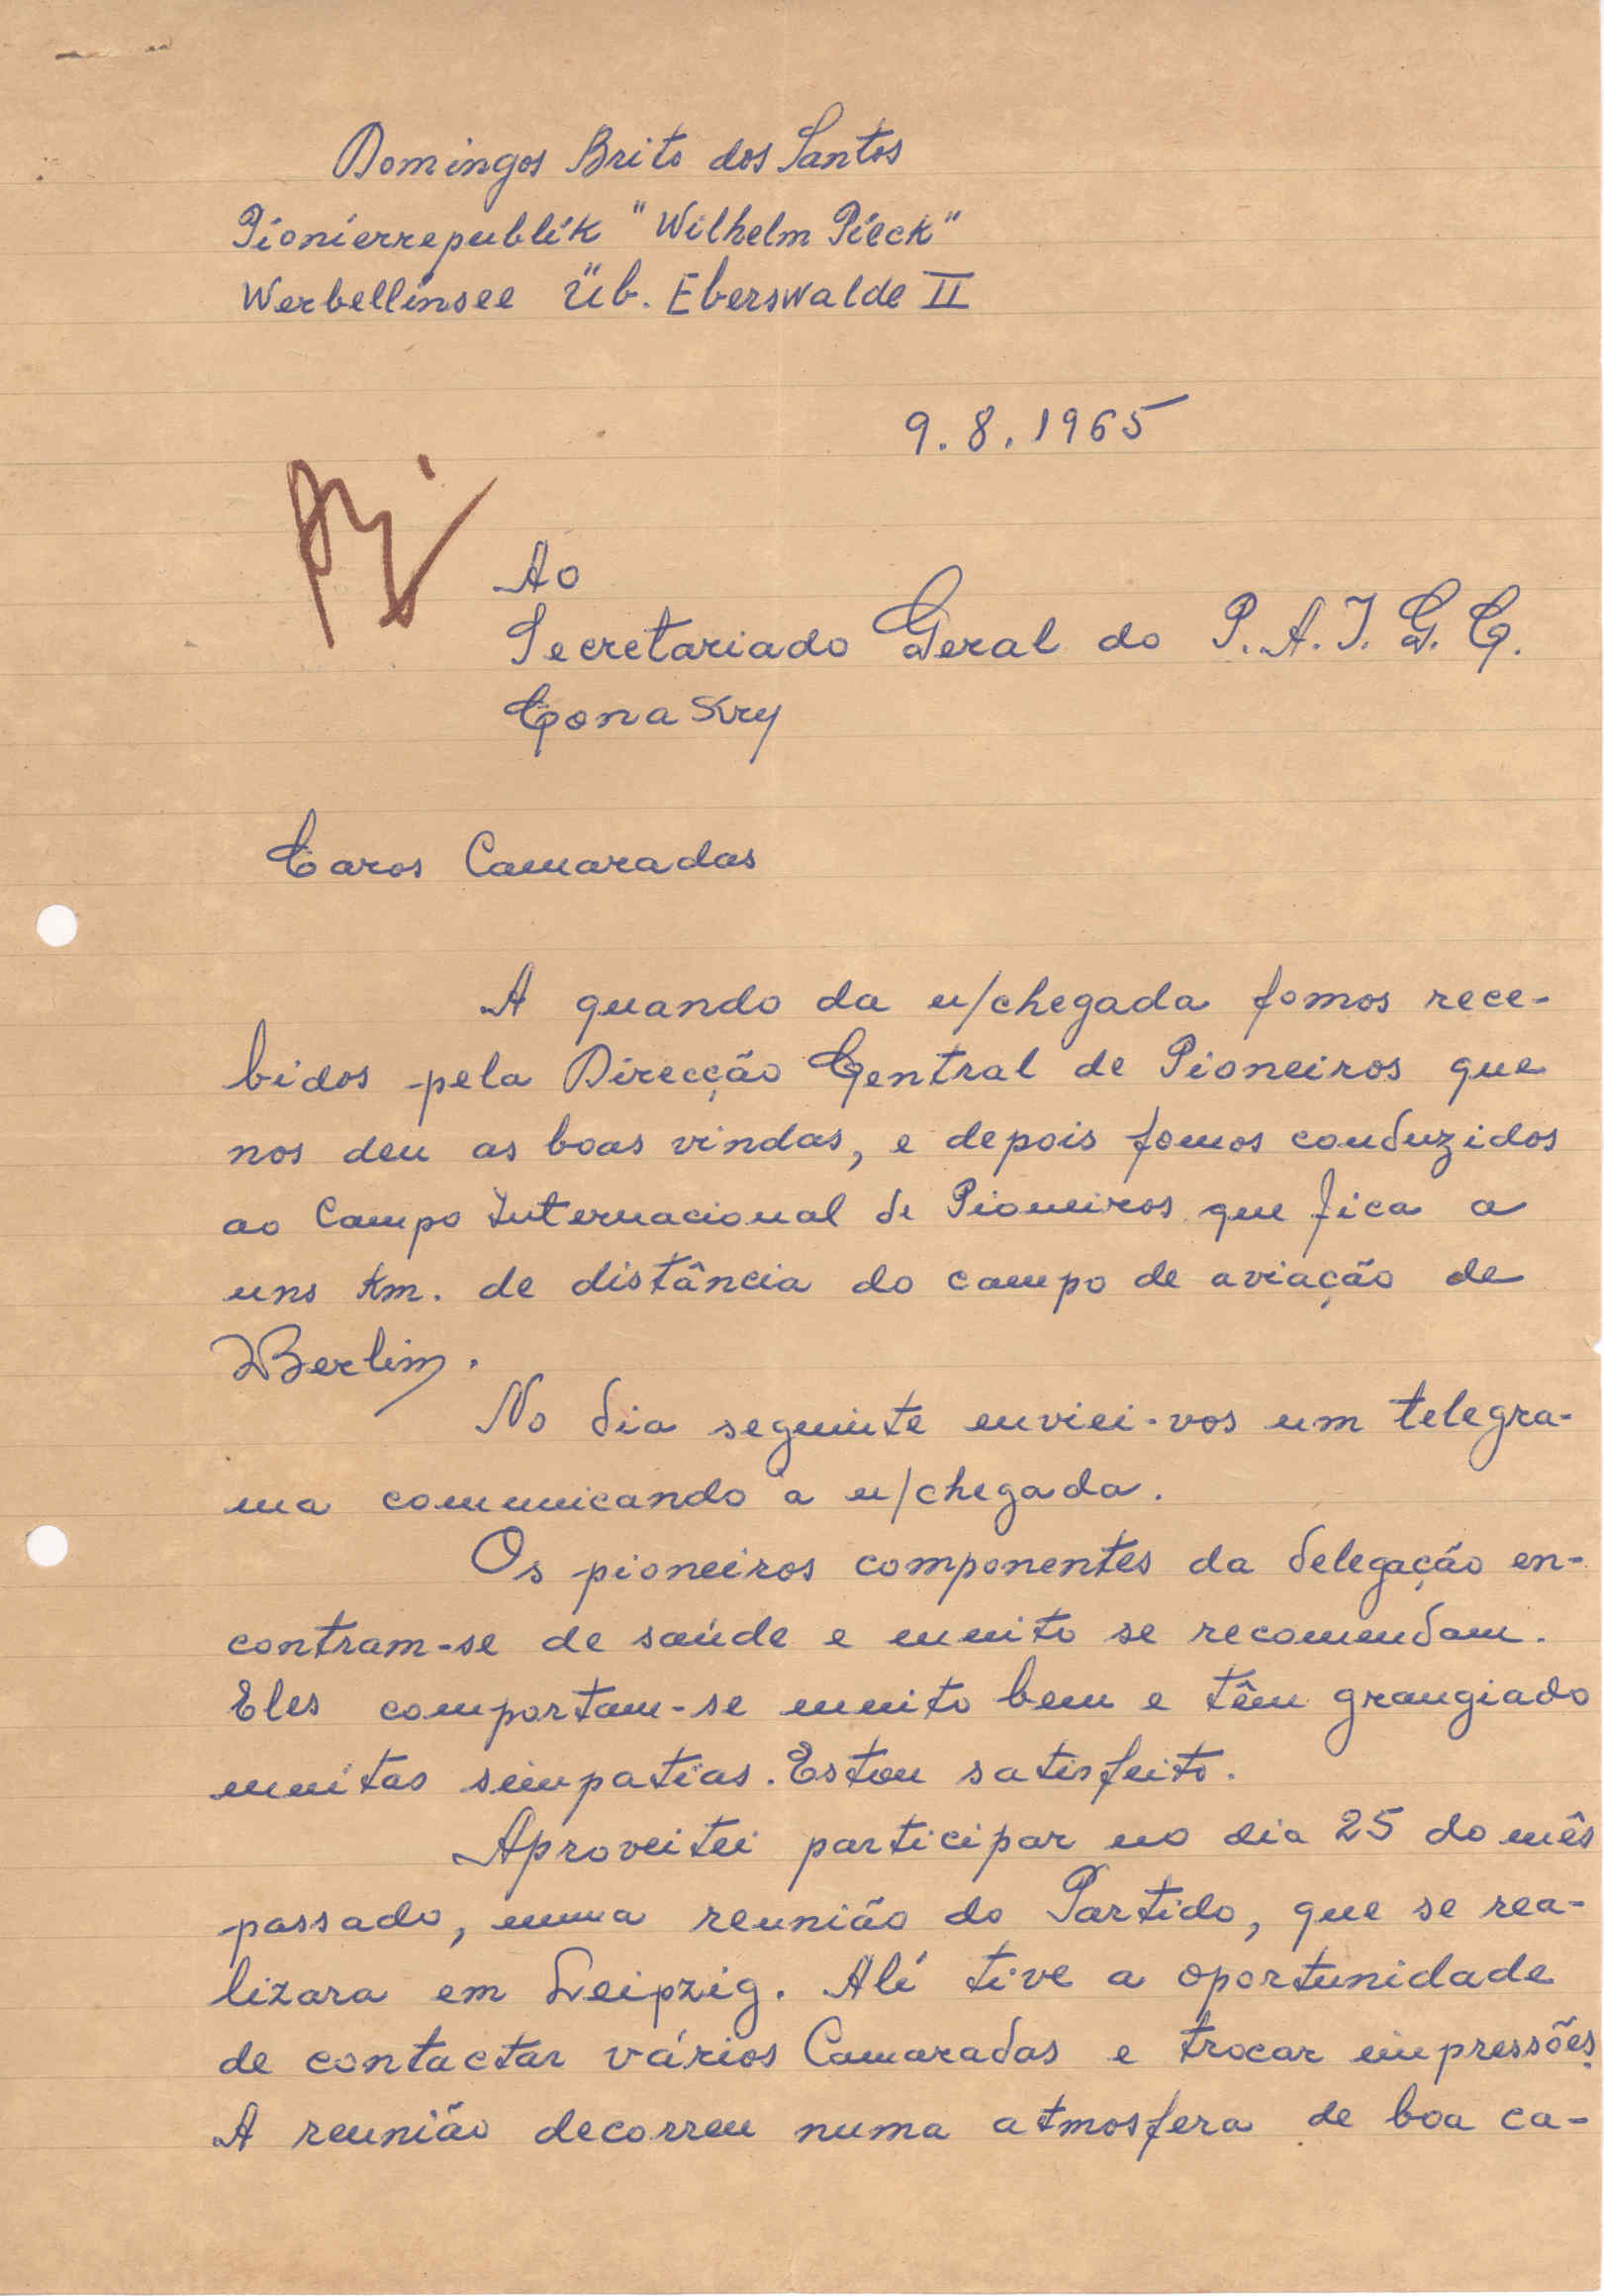 Domingos Brito dos Santos
Pionierrepublik "Wilhelm Pieck"
Werbellinsee Üb. Eberswalde II
9.8.1965
Ao
Secretariado Geral do P.A.I.G.C.
Conakry
Caros Camaradas
A quando da n/chegada fomos rece-
bidos pela Direcção Central de Pioneiros que
nos deu as boas vindas, e depois fomos conduzidos
ao Campo Internacional de Pioneiros que fica a
uns Km. de distância do campo de aviação de
Berlim.
No dia seguinte enviei-vos um telegra-
ma comunicando a n/chegada.
Os pioneiros componentes da delegação en-
contram-se de saúde e muito se recomendam.
Eles comportam-se muito bem e têm grangiado
muitas simpatias. Estou satisfeito.
Aproveitei participar no dia 25 do mês
passado, numa reunião do Partido, que se rea-
lizara em Leipzig. Ali tive a oportunidade
de contactar vários Camaradas e trocar impressões.
A reunião decorreu numa atmosfera de boa ca-